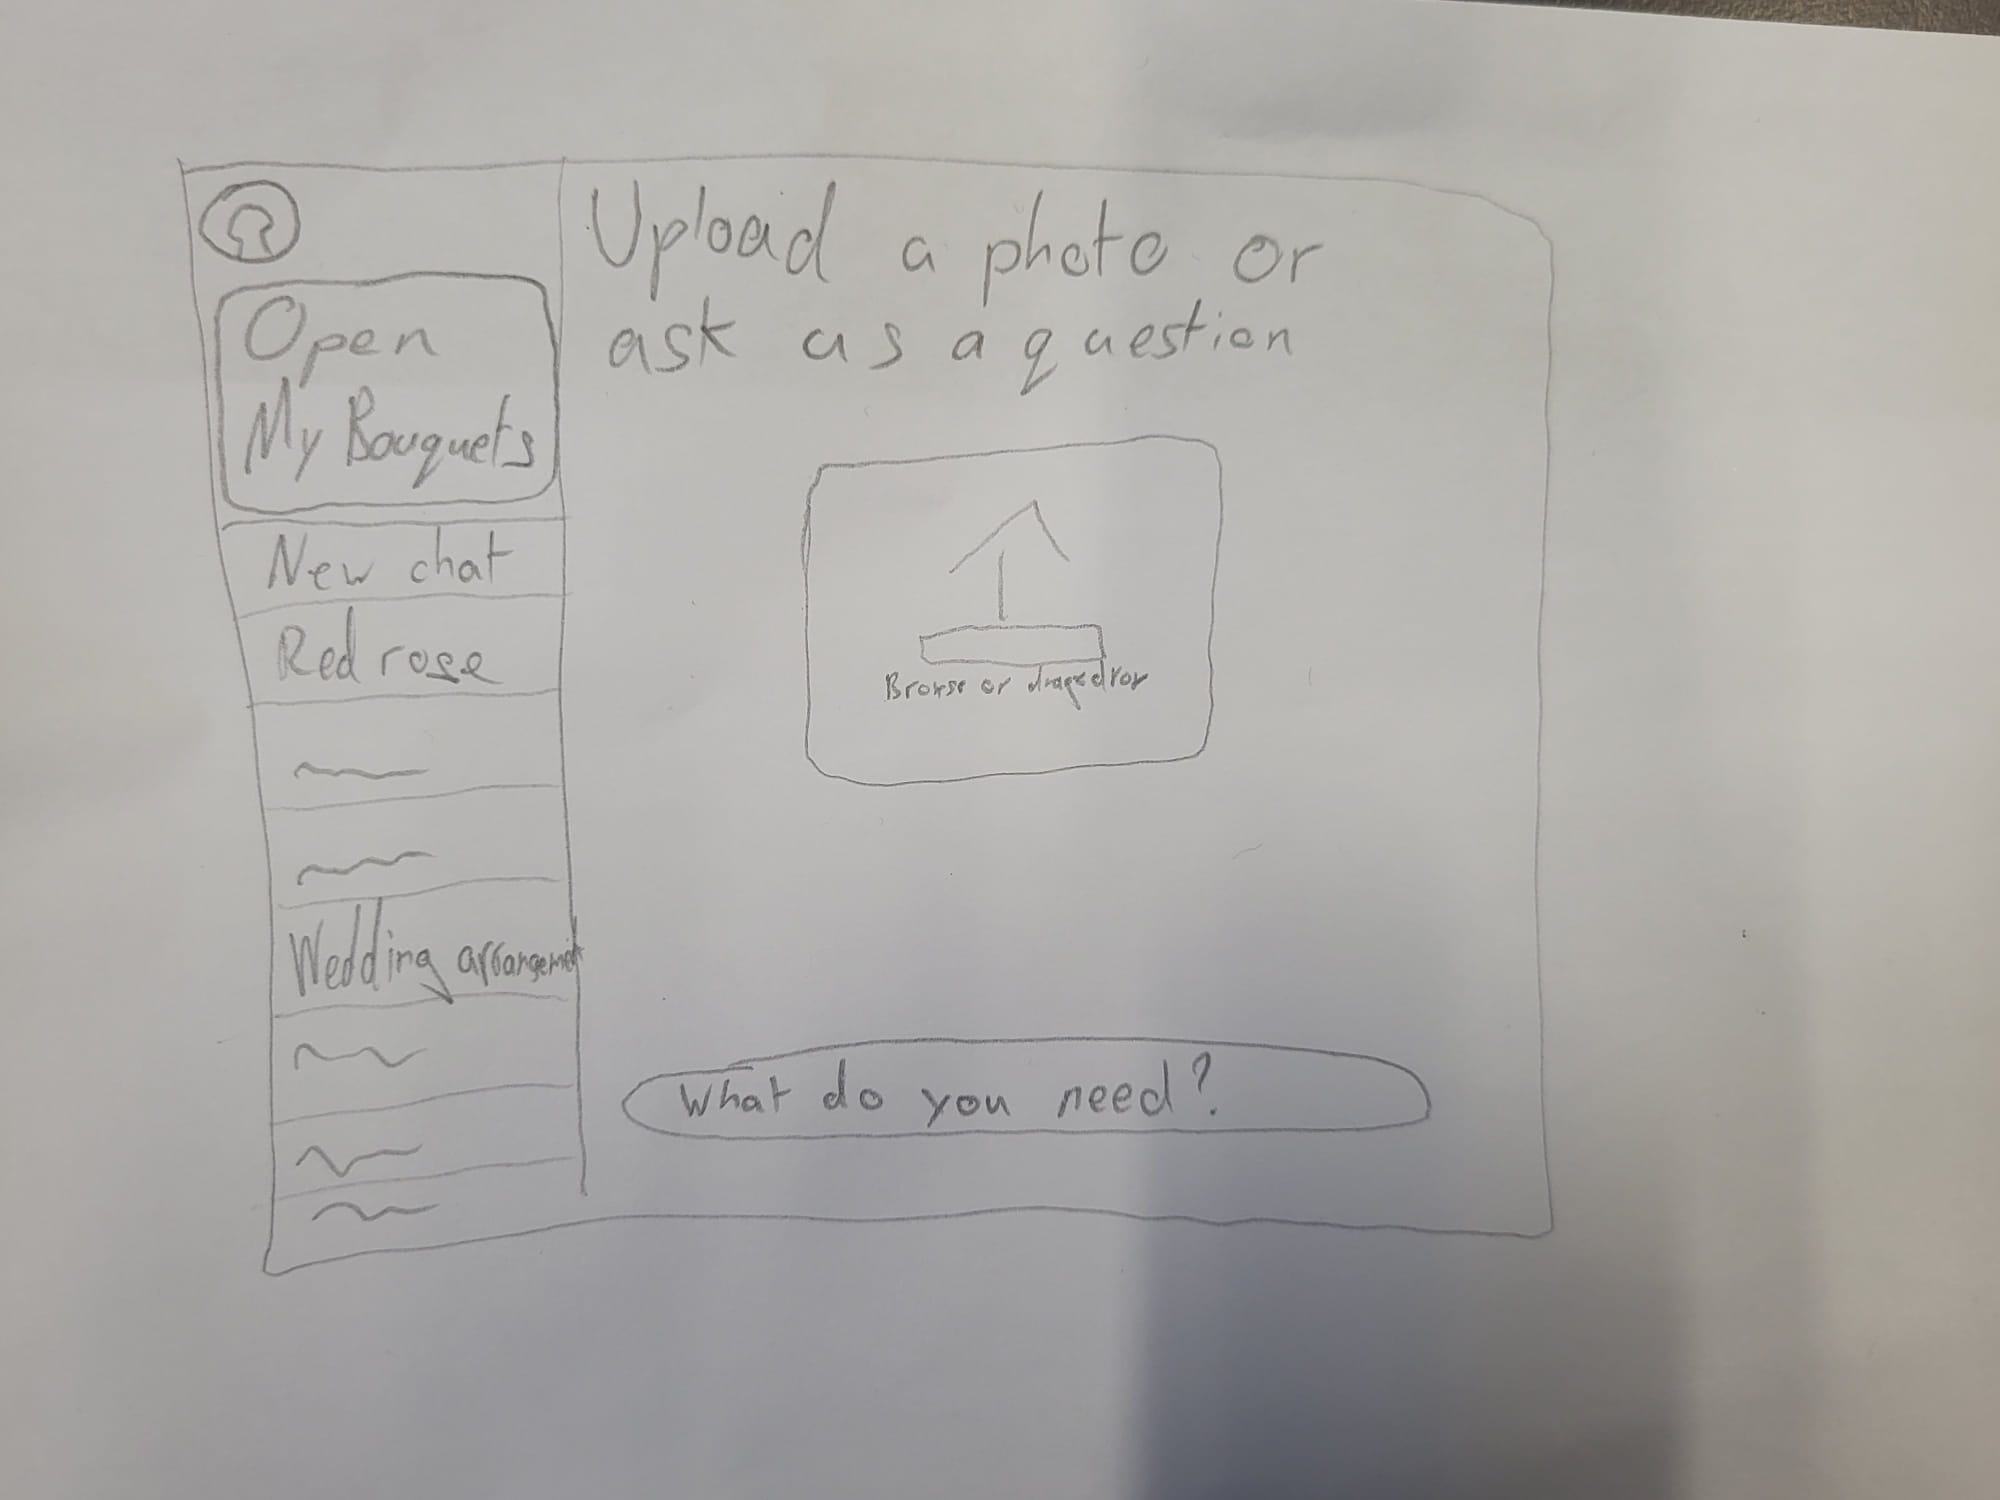 Open
My Bouquets
New chat
Red rose
Wedding arrangement
Upload a photo or
ask us a question
Browse or
What do you need?